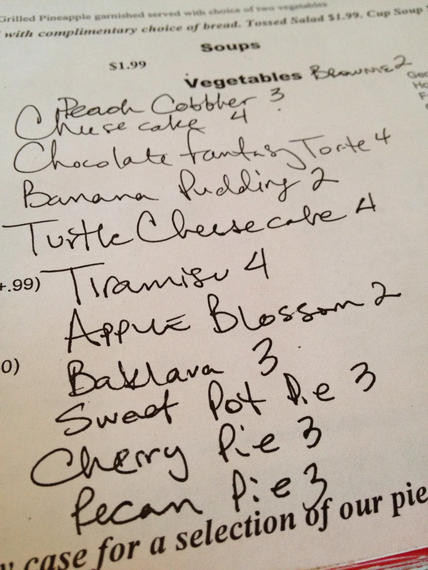 Grilled Pineapple garnished served with choice of two vegetables
with complimentary choice of bread. Tossed Salad $1.99, Cup Soup
Soups
$1.99
Vegetables Brownie 2
Peach Cobbler 3
Cheesecake 4
Chocolate fantasy Torte 4
Banana Pudding 2
Turtle Cheesecake 4
.99) Tiramisu 4
Apple Blossom 2
0) Baklava 3
Sweet Pot Pie 3
Cherry Pie 3
Pecan Pie 3
case for a selection of our pie